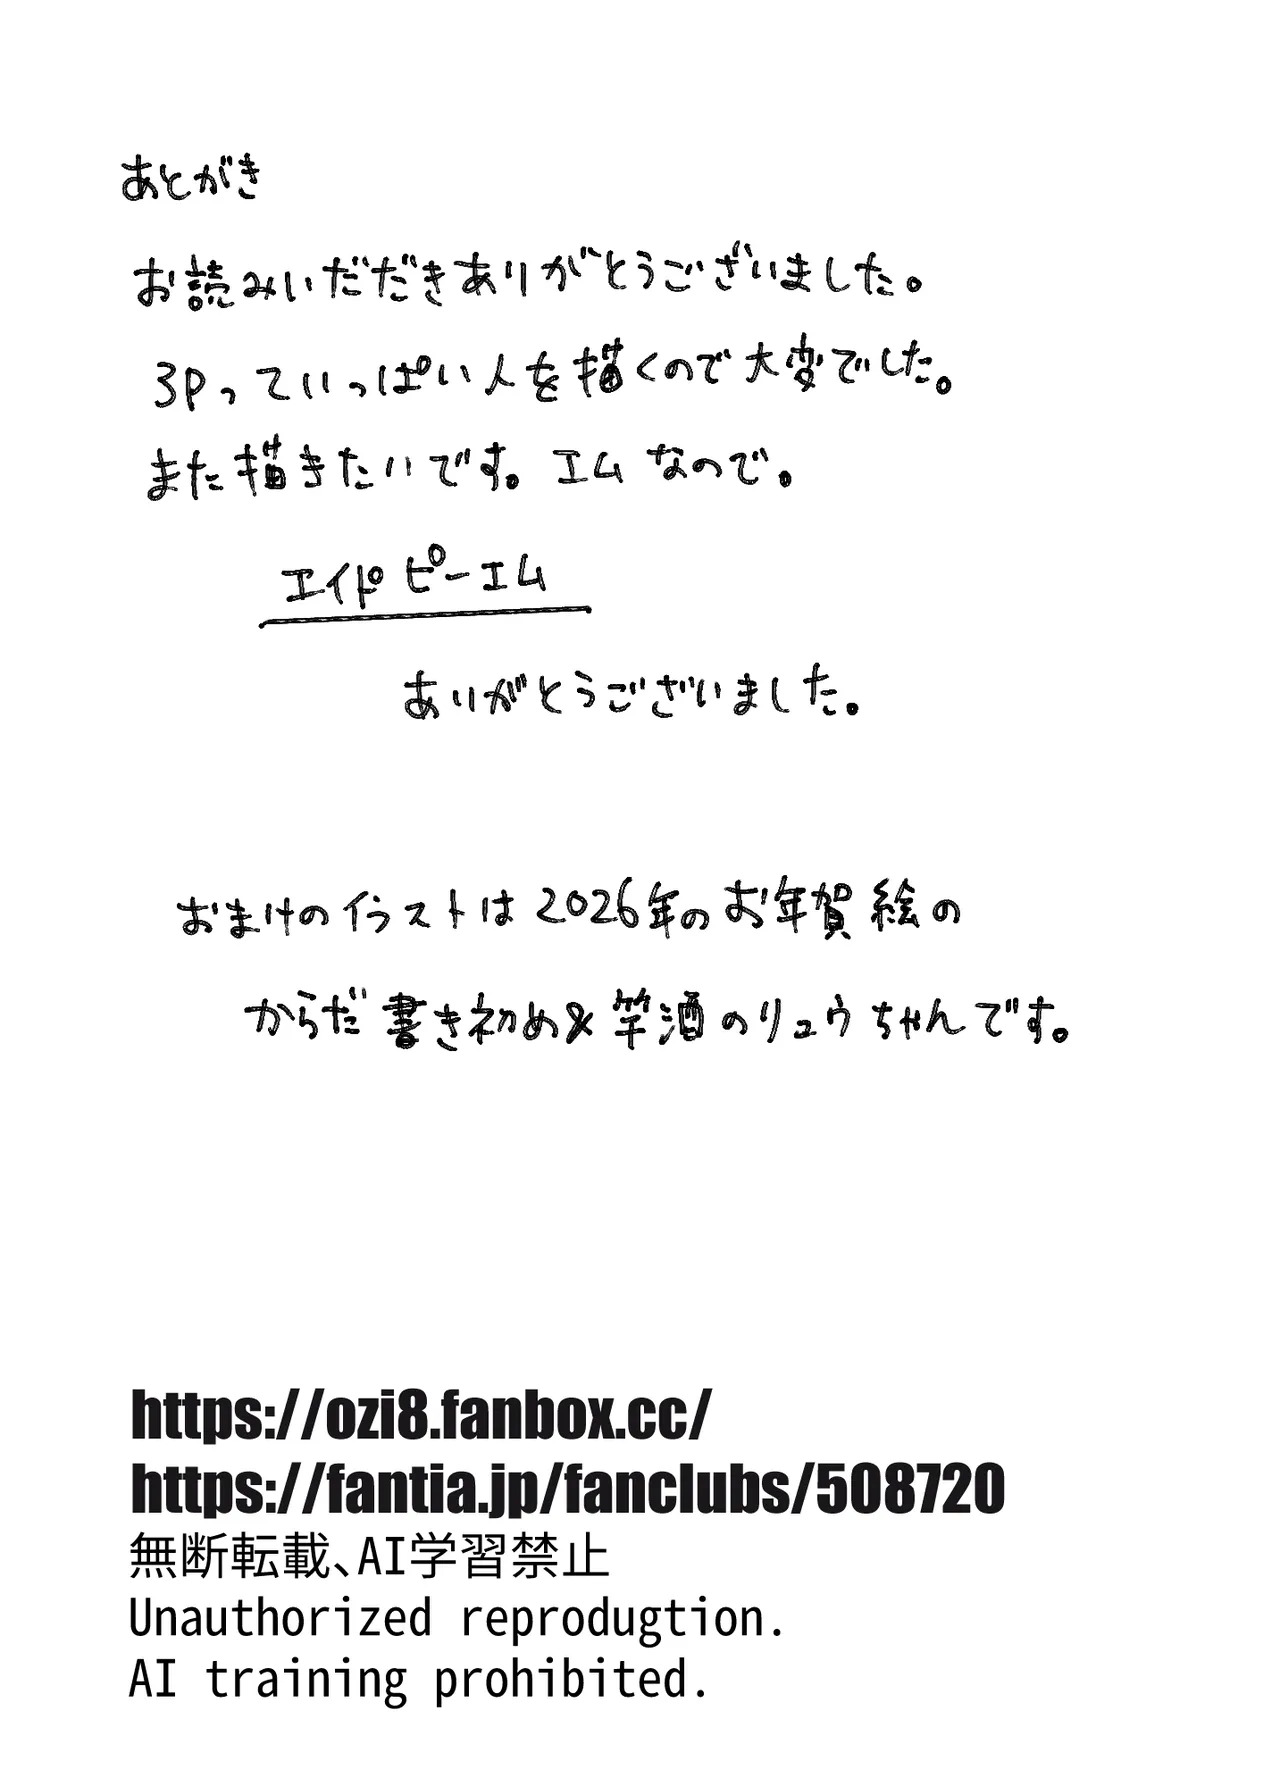 あとがき
お読みいだだきありがとうございました。
3Pっていっぱい人を描くので大変でした。
また描きたいです。エムなので。
エイド ピーエム
ありがとうございました。
おまけのイラストは2026年のお年賀絵の
からだ書き初め&竿酒のリュウちゃんです。
https://ozi8.fanbox.cc/
https://fantia.jp/fanclubs/508720
無断転載、AI学習禁止
Unauthorized reprodugtion.
AI training prohibited.